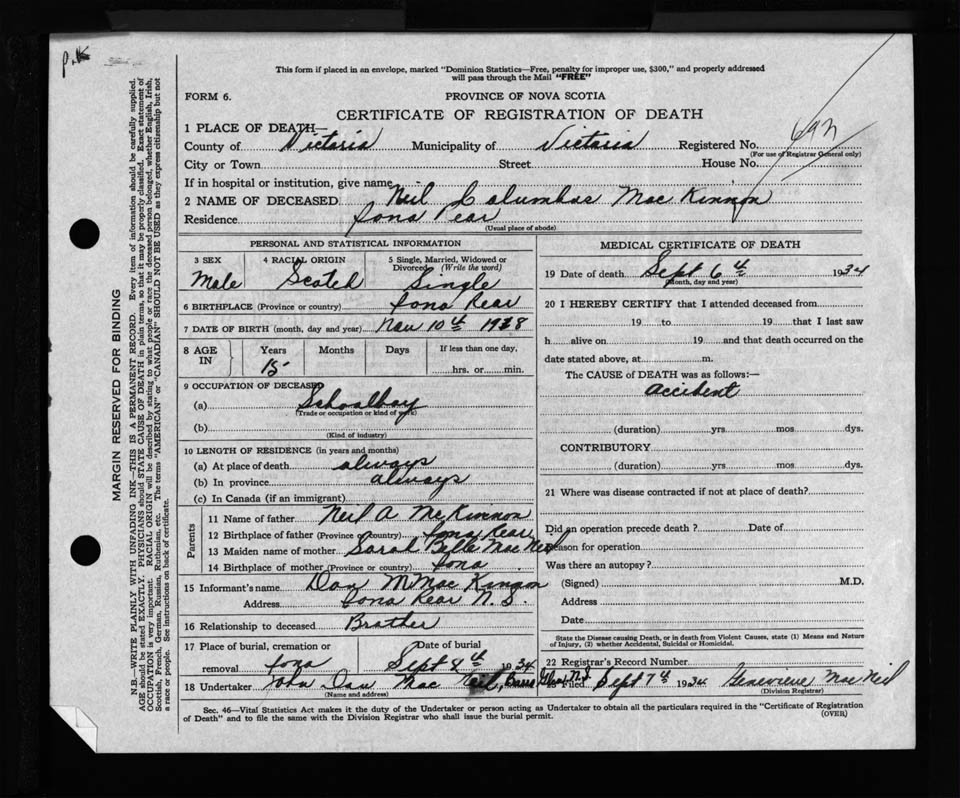 P.K
This form if placed in an envelope, marked "Dominion Statistics—Free, penalty for improper use, $300," and properly addressed
will pass through the Mail "FREE"
FORM 6.
PROVINCE OF NOVA SCOTIA
CERTIFICATE OF REGISTRATION OF DEATH
1 PLACE OF DEATH—
County of Victoria Municipality of Victoria Registered No.
(For use of Registrar General only)
City or Town Street House No.
If in hospital or institution, give name
2 NAME OF DECEASED Neil Columbas Mac Kinnon
Residence Iona Rear
(Usual place of abode)
PERSONAL AND STATISTICAL INFORMATION
3 SEX 4 RACIAL ORIGIN 5 Single, Married, Widowed or
Divorced (Write the word)
Male Scotch Single
6 BIRTHPLACE (Province or country) Iona Rear
7 DATE OF BIRTH (month, day and year) Nov 10th 1918
8 AGE IN Years Months Days If less than one day,
15 hrs. or min.
9 OCCUPATION OF DECEASED
(a) Schoolboy
(Trade or occupation or kind of work)
(b)
(Kind of industry)
10 LENGTH OF RESIDENCE (in years and months)
(a) At place of death always
(b) In province always
(c) In Canada (if an immigrant)
Parents
11 Name of father Neil A McKinnon
12 Birthplace of father (Province or country) Iona Rear
13 Maiden name of mother Sarah Belle Mac Neil
14 Birthplace of mother (Province or country) Iona
15 Informant's name Dan M Mac Kinnon
Address Iona Rear N.S.
16 Relationship to deceased Brother
17 Place of burial, cremation or Date of burial
removal Iona Sept 8th 1934
18 Undertaker John Dan Mac Neil,
(Name and address)
MEDICAL CERTIFICATE OF DEATH
19 Date of death Sept 6th 1934
(Month, day and year)
20 I HEREBY CERTIFY that I attended deceased from
19 to 19 that I last saw
h alive on 19 and that death occurred on the
date stated above, at m.
The CAUSE of DEATH was as follows:—
accident
(duration) yrs. mos. dys.
CONTRIBUTORY
(duration) yrs. mos. dys.
21 Where was disease contracted if not at place of death?
Did an operation precede death? Date of
Reason for operation
Was there an autopsy?
(Signed) M.D.
Address
Date
State the Disease causing Death, or in death from Violent Causes, state (1) Means and Nature
of Injury, (2) whether Accidental, Suicidal or Homicidal.
22 Registrar's Record Number
Filed Sept 7th 1934 Genevieve Mac Neil
(Division Registrar)
Sec. 46—Vital Statistics Act makes it the duty of the Undertaker or person acting as Undertaker to obtain all the particulars required in the "Certificate of Registration
of Death" and to file the same with the Division Registrar who shall issue the burial permit.
(OVER)
MARGIN RESERVED FOR BINDING
N.B.—WRITE PLAINLY WITH UNFADING INK—THIS IS A PERMANENT RECORD. Every item of information should be carefully supplied.
AGE should be stated EXACTLY. PHYSICIANS should STATE CAUSE OF DEATH in plain terms, so that it may be properly classified. Exact statement of
OCCUPATION is very important. RACIAL ORIGIN will be described by stating to what people or race the deceased person belonged, whether English, Irish,
Scottish, French, German, Russian, Ruthenian, etc. The terms "AMERICAN" or "CANADIAN" SHOULD NOT BE USED as they express citizenship but not
a race or people. See instructions on back of certificate.